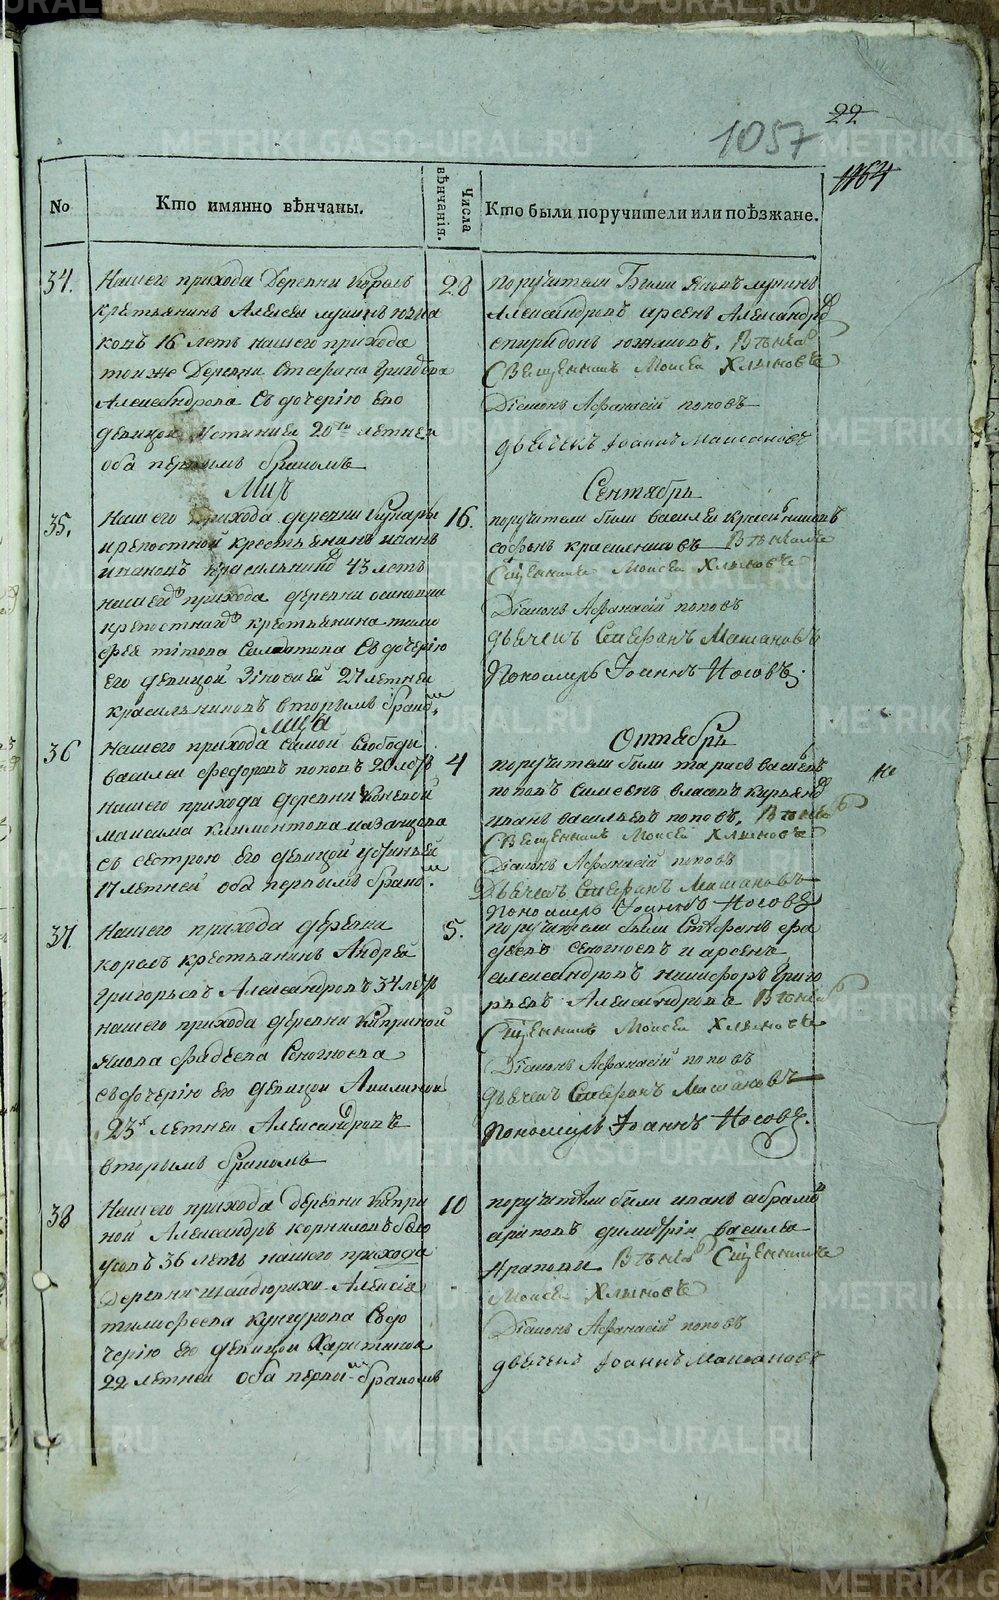 22
1057
1164
No
Кто имянно вѣнчаны.
Числа вѣнчанія.
Кто были поручители или поѣзжане.
34.
Нашего прихода Деревни Король
крестьянинъ Алексеи
16 летъ нашего прихода
тои же Деревни Стефана Григорьева
Александрова съ дочерію ево
девицеи Устиньеи 20ти летнеи
оба первымъ бракомъ
28
поручители Были Яковъ
Александровъ арсенъ Александровъ
спиридонъ Втомъ
Священникъ Моисеи Хлыновъ
Діаконъ Афанасій поповъ
дьячекъ Іоаннъ Машановъ
Сентябрь
35.
Нашего прихода деревни Кунары
крепостной крестьянинъ иванъ
Красильниковъ 43 летъ
нашего прихода деревни
крепостнаго крестьянина
титова Солдатова съ дочерію
его девицой Зіновией 27 летней
красильниковъ вторымъ бракомъ
16.
поручители были василеи красильниковъ
софонъ красильниковъ Втомъ
Священникъ Моисеи Хлыновъ
Діаконъ Афанасій поповъ
дьячекъ Стефанъ Машановъ
Пономарь Іоаннъ Носовъ.
Октябрь
36
Нашего прихода самой Слободы
василеи федоровъ поповъ 20 летъ
нашего прихода деревни Коневой
максима климонтова казанцова
съ сестрою его девицой устиньей
17 летней оба первымъ бракомъ.
4
поручители были тарасъ васильевъ
поповъ симеонъ власовъ
иванъ васильевъ поповъ. Втомъ
Священникъ Моисей Хлыновъ
Діаконъ Афанасій поповъ
Дьячекъ Стефанъ Машановъ
Пономарь Іоаннъ Носовъ
37
Нашего прихода деревни
король крестьянинъ Андреи
Григорьевъ Александровъ 34 летъ
нашего прихода деревни Киприной
Якова Фадеева Сеногноева
съ дочерію его девицои Акилиной
23х летнеи Александровъ
вторымъ бракомъ
5.
поручители были Стефанъ фа
деевъ сеногноевъ и арсенъ
александровъ никифоръ Григо
рьевъ Александровъ Втомъ
Священникъ Моисеи Хлыновъ
Діаконъ Афанасій поповъ
дьячекъ Стефанъ Машановъ
Пономарь Іоаннъ Носовъ.
38
Нашего прихода деревни Кипри
ной Александръ корниловъ бело
усовъ 36 летъ нашего прихода
Деревни шайдюрихи Алексія
тимофеева кунгурова съ до
черію его девицой Харитиной
22 летнеи оба первымъ бракомъ
10
поручители были иванъ абрамовъ
димитріи василья
Втомъ Священникъ
Моисеи Хлыновъ
Діаконъ Афанасій поповъ
дьячекъ Іоаннъ Машановъ
METRIKI.GASO-URAL.RU